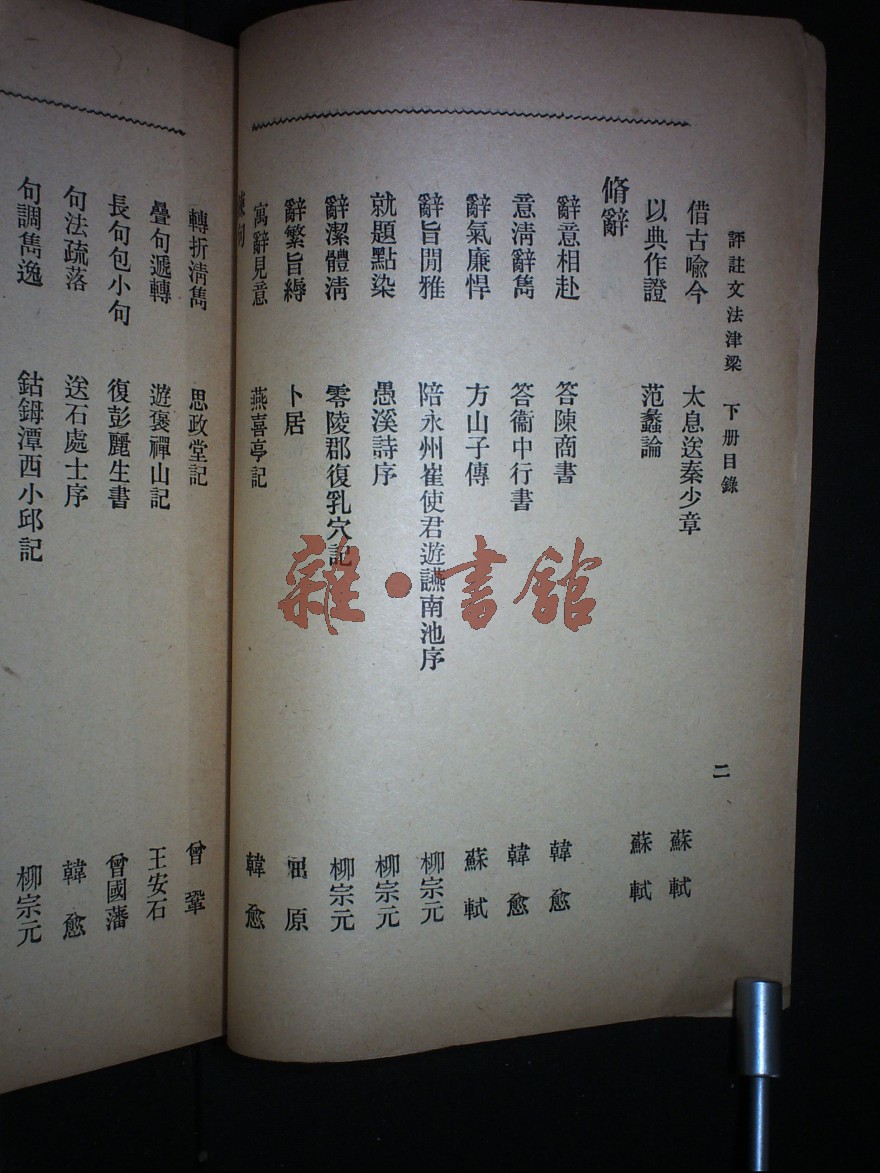 評註文法津梁 下册目錄 二
借古喩今 太息送秦少章 蘇軾
以典作證 范蠡論 蘇軾
脩辭
辭意相赴 答陳商書 韓愈
意淸辭雋 答衞中行書 韓愈
辭氣廉悍 方山子傳 蘇軾
辭旨閒雅 陪永州崔使君遊讌南池序 柳宗元
就題點染 愚溪詩序 柳宗元
辭潔體淸 零陵郡復乳穴記 柳宗元
辭繁旨縟 卜居 屈原
寓辭見意 燕喜亭記 韓愈
轉折淸雋 思政堂記 曾鞏
疊句遞轉 遊褒禪山記 王安石
長句包小句 復彭麗生書 曾國藩
句法疏落 送石處士序 韓愈
句調雋逸 鈷鉧潭西小邱記 柳宗元
雜·書館